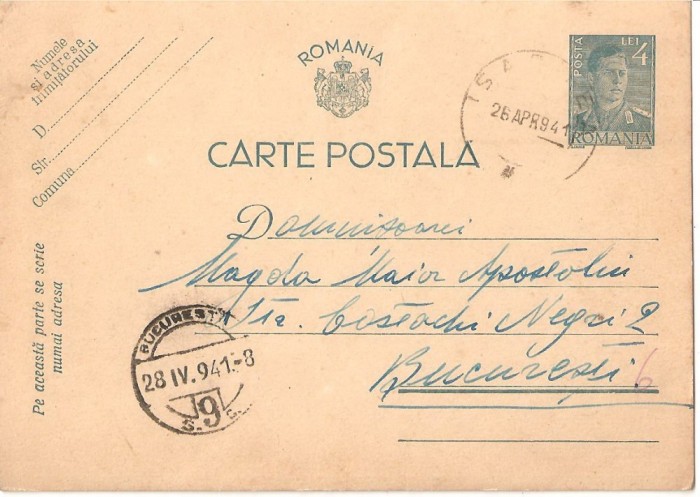 Numele
și adresa
trimițătorului
D.
Str.
Comuna
ROMANIA
POSTA LEI 4
ROMANIA
26 APR 941
CARTE POSTALA
Pe această parte se scrie
numai adresa
Domnișoarei
Magda Maior Apostoliu
Str. Costachi Negri 2
București 6
BUCUREȘTI
28 IV. 941.-8
9